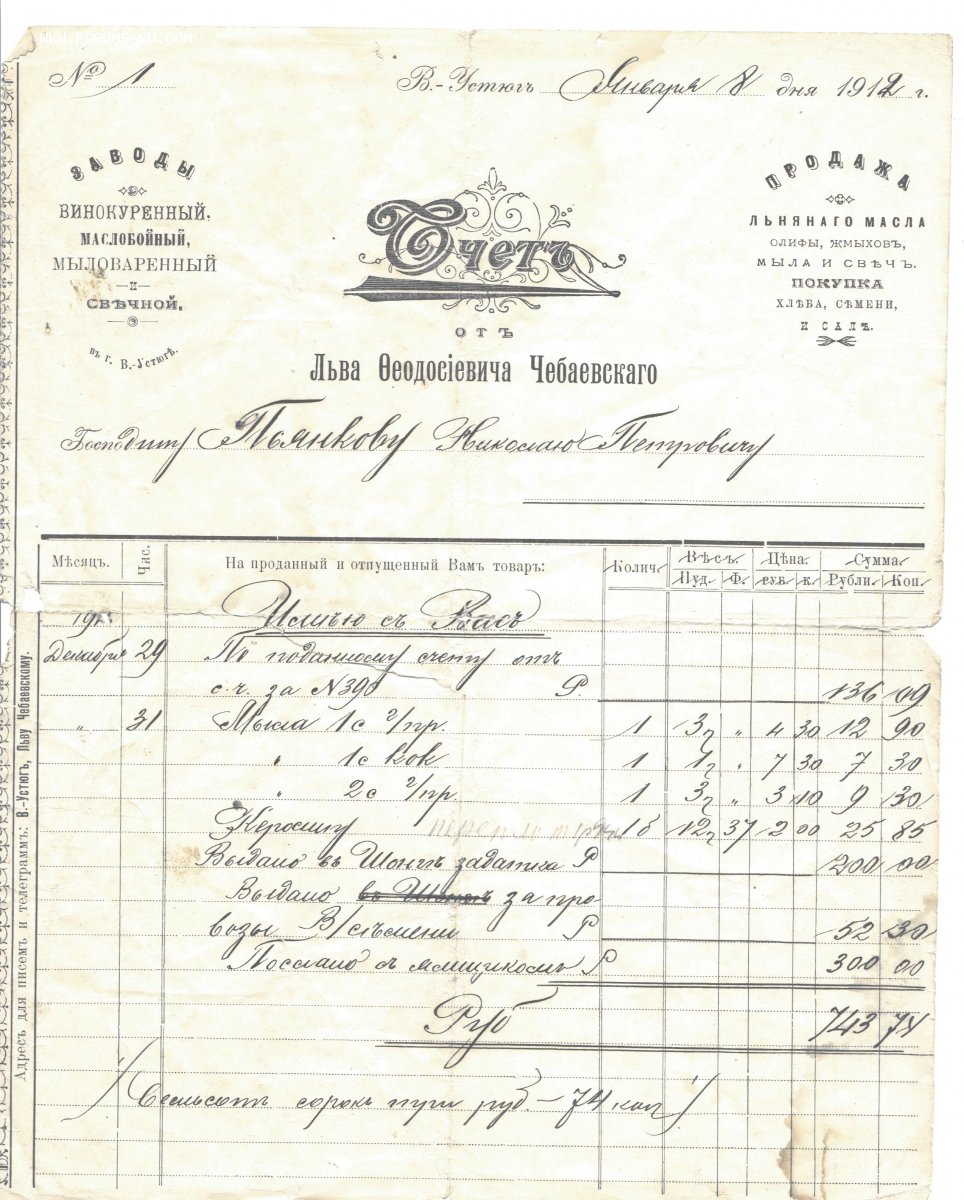 WWW.FORUMS-SU.COM
№ 1
В.-Устюгъ Января 8 дня 1912 г.
ЗАВОДЫ
ВИНОКУРЕННЫЙ,
МАСЛОБОЙНЫЙ,
МЫЛОВАРЕННЫЙ
И
СВѢЧНОЙ.
въ г. В.-Устюгѣ.
Счетъ
ОТЪ
Льва Ѳеодосіевича Чебаевскаго
ПРОДАЖА
ЛЬНЯНАГО МАСЛА
ОЛИФЫ, ЖМЫХОВЪ,
МЫЛА И СВѢЧЪ.
ПОКУПКА
ХЛѢБА, СѢМЕНИ,
И САЛА.
Господину Пьянкову Николаю Петровичу
Мѣсяцъ. Час. На проданный и отпущенный Вамъ товаръ: Колич. Вѣсъ. Цѣна Сумма
Пуд. Ф. рув. к. Рубли. Коп.
191 Имѣю съ Васъ
Декабря 29 По поданному счету отъ
с.ч. за N390 Р 136 09
„ 31 Мыла 1с г/пр. 1 3п „ 4 30 12 90
„ 1с Кок 1 1п „ 7 30 7 30
„ 2с г/пр. 1 3п „ 3 10 9 30
Керосину 1б 12п 37 2 00 25 85
Выдано въ задатка Р 200 00
Выдано за про
возы В/сѣмени Р 52 30
Послано съ ямщикомъ Р 300 00
Руб 743 74
/Семьсотъ сорокъ три руб. – 74 коп/
Адресъ для писемъ и телеграммъ: В.-Устюгъ, Льву Чебаевскому.